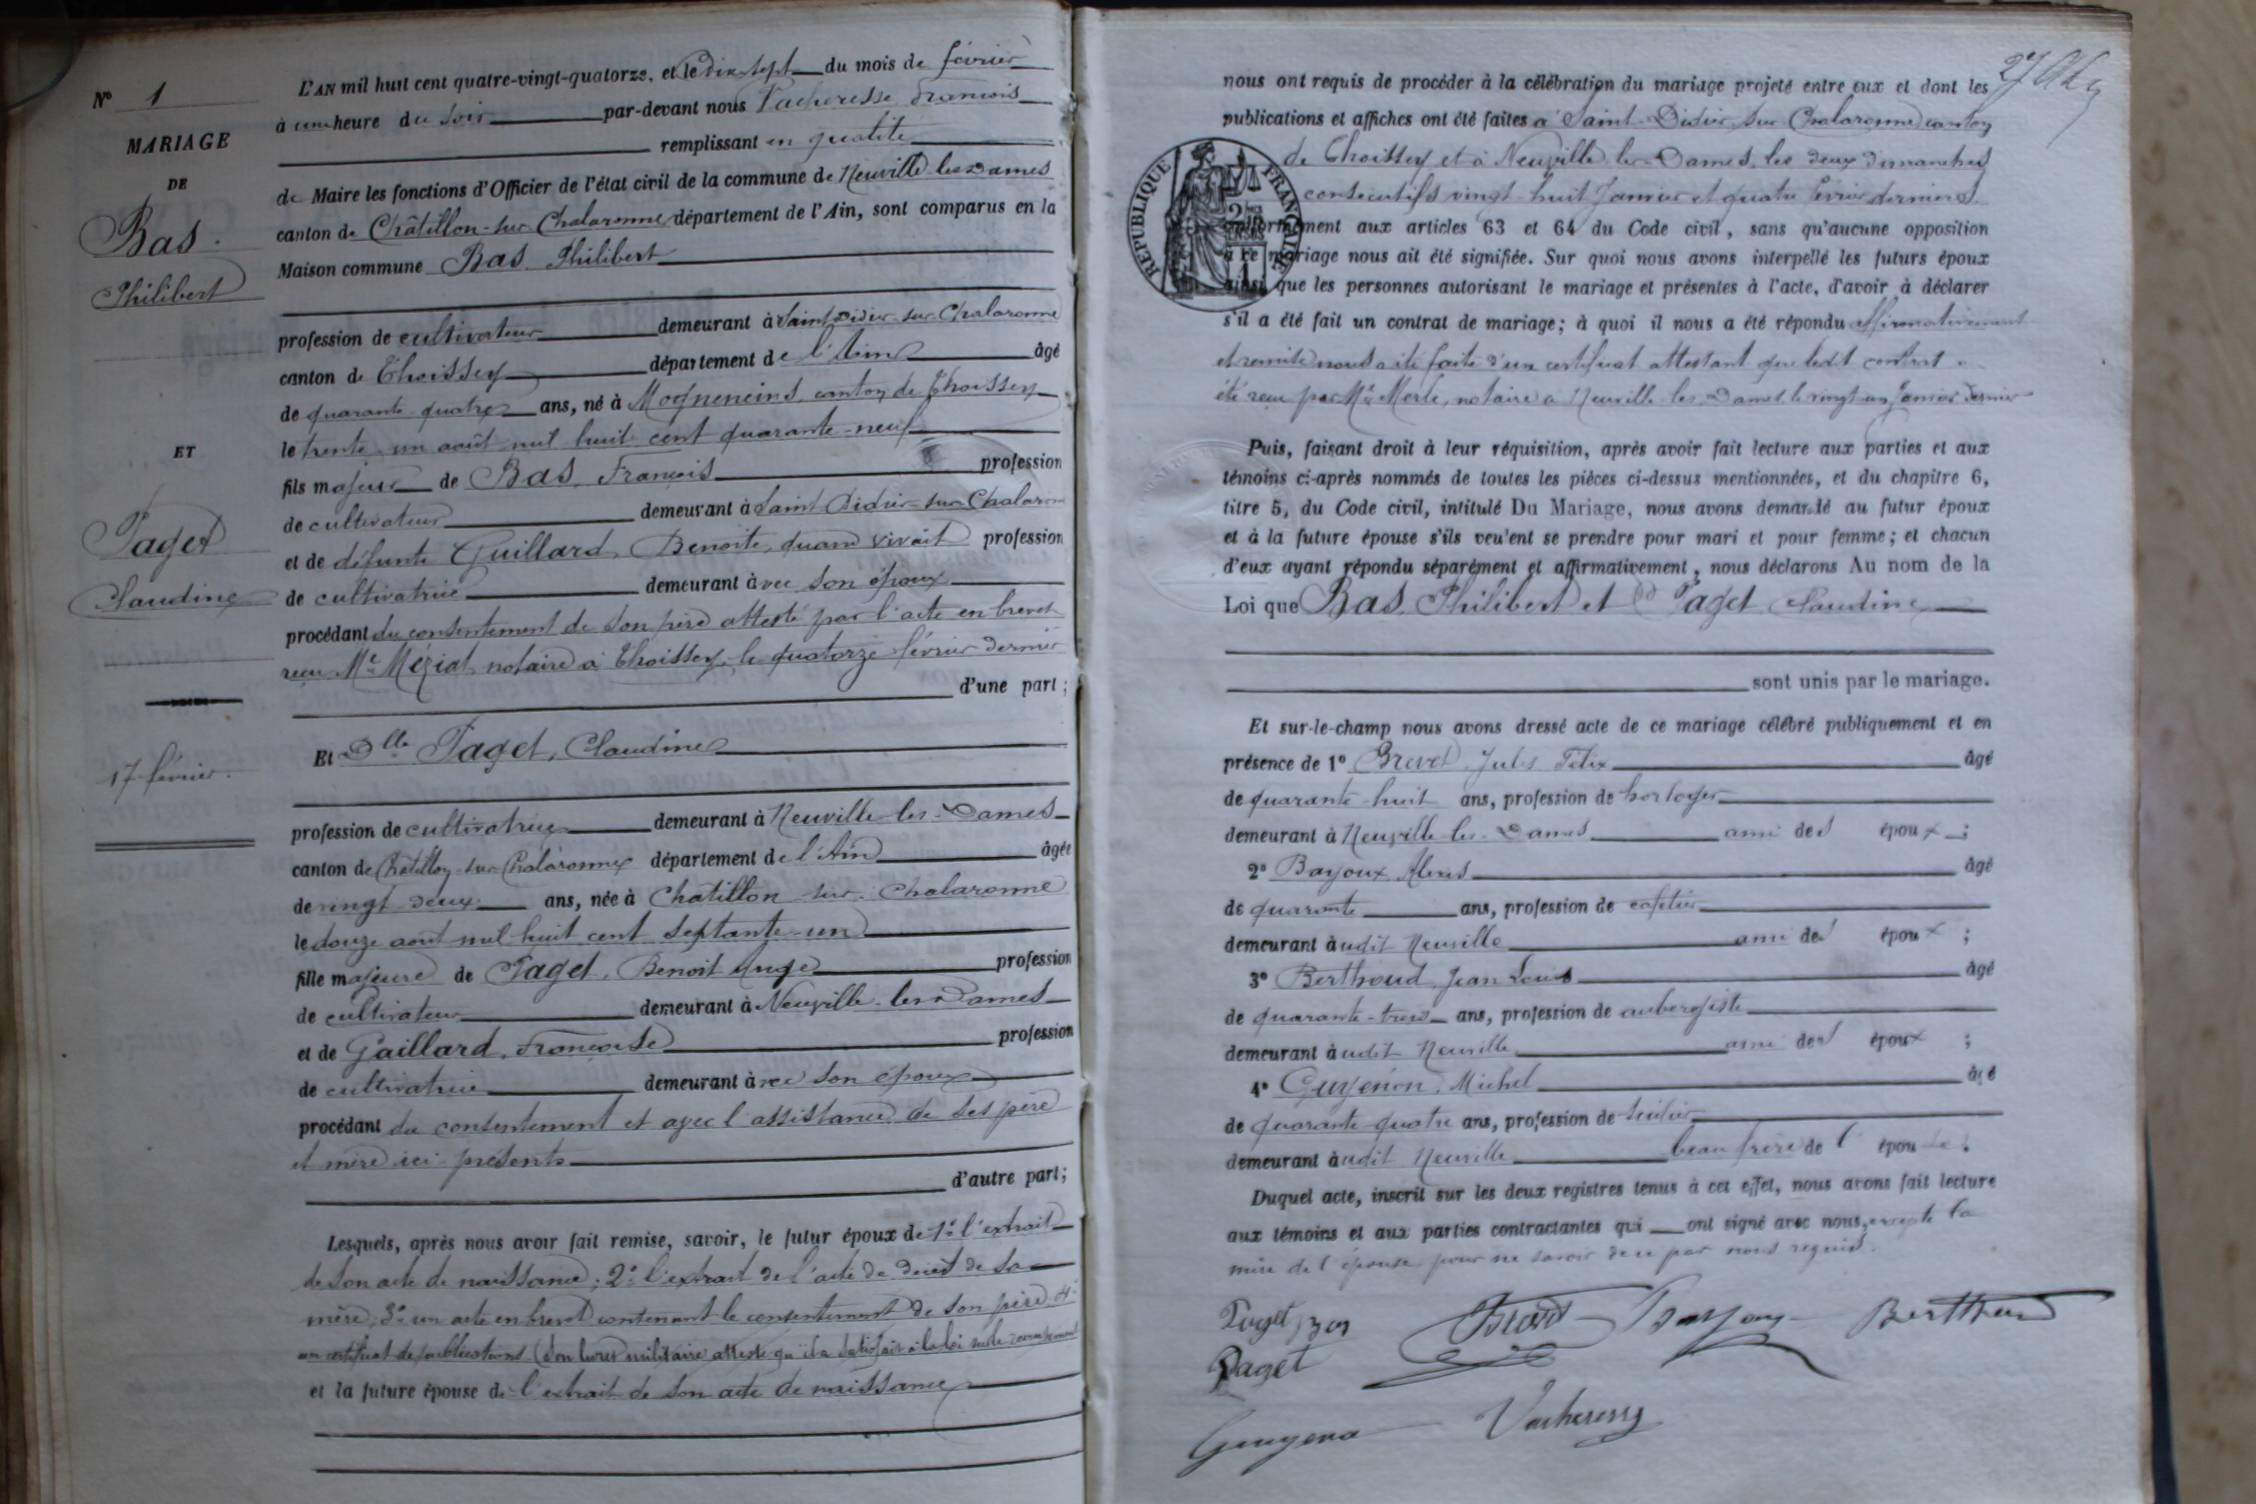 N° 1
MARIAGE
DE
Bas
Philibert
ET
Paget
Claudine
17 février.
L'AN mil huit cent quatre-vingt-quatorze, et le dix sept du mois de février
à une heure du soir par-devant nous Vacheresse François
remplissant en qualité
de Maire les fonctions d'Officier de l'état civil de la commune de Neuville-les-Dames
canton de Châtillon-sur-Chalaronne département de l'Ain, sont comparus en la
Maison commune Bas Philibert
profession de cultivateur demeurant à Saint Didier-sur-Chalaronne
canton de Thoissey département de l'Ain âgé
de quarante quatre ans, né à Mogneneins, canton de Thoissey
le trente un août mil huit cent quarante-neuf
fils majeur de Bas, François profession
de cultivateur demeurant à Saint Didier-sur-Chalaron
et de défunte Guillard, Benoite, quand vivait profession
de cultivatrice demeurant avec son époux
procédant du consentement de son père attesté par l'acte en brevet
reçu Me Méziat, notaire à Thoissey, le quatorze février dernier
d'une part ;
Et Dlle Paget, Claudine
profession de cultivatrice demeurant à Neuville-les-Dames
canton de Châtillon-sur-Chalaronne département de l'Ain âgée
de vingt deux ans, née à Chatillon-sur-Chalaronne
le douze août mil huit cent septante-un
fille majeure de Paget, Benoit Ange profession
de cultivateur demeurant à Neuville-les-Dames
et de Gaillard, Françoise profession
de cultivatrice demeurant avec son époux
procédant du consentement et avec l'assistance de ses père
et mère ici présents
d'autre part ;
Lesquels, après nous avoir fait remise, savoir, le futur époux de 1° l'extrait
de son acte de naissance ; 2° l'extrait de l'acte de décès de sa
mère ; 3° un acte en brevet contenant le consentement de son père 4°
un certificat de publications (son livret militaire atteste qu'il a satisfait à la loi sur le recrutement
et la future épouse de l'extrait de son acte de naissance
nous ont requis de procéder à la célébration du mariage projeté entre eux et dont les
publications et affiches ont été faites à Saint-Didier-sur-Chalaronne canton
de Thoissey et à Neuville-les-Dames, les deux dimanches
consécutifs vingt-huit Janvier et quatre février derniers
conformément aux articles 63 et 64 du Code civil, sans qu'aucune opposition
à ce mariage nous ait été signifiée. Sur quoi nous avons interpellé les futurs époux
ainsi que les personnes autorisant le mariage et présentes à l'acte, d'avoir à déclarer
s'il a été fait un contrat de mariage ; à quoi il nous a été répondu affirmativement
et remise nous a été faite d'un certificat attestant que ledit contrat a
été reçu par Me Merle, notaire à Neuville-les-Dames le vingt un Janvier dernier
RÉPUBLIQUE FRANÇAISE
Puis, faisant droit à leur réquisition, après avoir fait lecture aux parties et aux
témoins ci-après nommés de toutes les pièces ci-dessus mentionnées, et du chapitre 6,
titre 5, du Code civil, intitulé Du Mariage, nous avons demandé au futur époux
et à la future épouse s'ils veulent se prendre pour mari et pour femme ; et chacun
d'eux ayant répondu séparément et affirmativement, nous déclarons Au nom de la
Loi que Bas, Philibert et Paget Claudine
sont unis par le mariage.
Et sur-le-champ nous avons dressé acte de ce mariage célébré publiquement et en
présence de 1° Brevet Jules Félix âgé
de quarante-huit ans, profession de horloger
demeurant à Neuville-les-Dames ami des époux ;
2° Bayoux Alexis âgé
de quarante ans, profession de cafetier
demeurant audit Neuville ami des époux ;
3° Berthoud, Jean Louis âgé
de quarante-trois ans, profession de aubergiste
demeurant audit Neuville ami des époux ;
4° Guyenon, Michel âgé
de quarante-quatre ans, profession de
demeurant audit Neuville beau frère de l'épouse.
Duquel acte, inscrit sur les deux registres tenus à cet effet, nous avons fait lecture
aux témoins et aux parties contractantes qui ont signé avec nous, excepté la
mère de l'épouse pour ne savoir de ce par nous requis.
Paget Bas Bayoux Berthoud
Paget
Guyenon Vacheresse